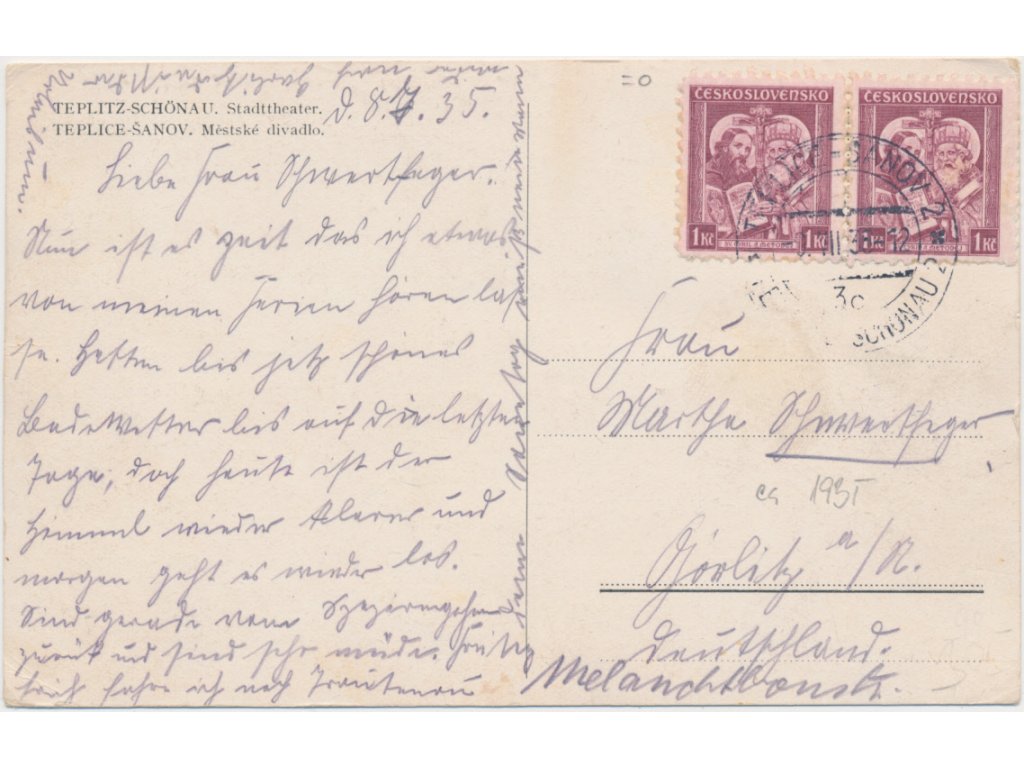 TEPLITZ-SCHÖNAU. Stadttheater.
TEPLICE-ŠANOV. Městské divadlo.
d. 8.7.35.
Liebe Frau Schwertfeger.
Nun ist es zeit das ich etwas
von meinen Ferien hören las
se. Hatten bis jetz schönes
BadeWetter bis auf die letzten
Tage, doch heute ist der
Himmel wieder klarer und
morgen geht es wieder los.
Sind gerade vom Spaziergehen
zurück und sind sehr müde.
früh fahre ich nach Trautenau
=0
ČESKOSLOVENSKO
ČESKOSLOVENSKO
1 Kč 1 Kč
1 Kč 1 Kč
ŠANOV 2
SCHÖNAU 2
3c
Frau
Martha Schwertfeger
ca 1935
Görlitz a/N.
Deutschland.
Melanchthonstr.